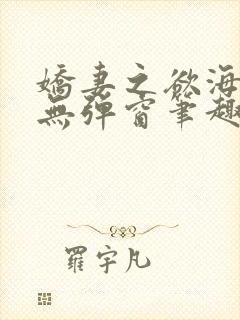 嬌妻之慾海
無彈窗筆趣
羅宇凡